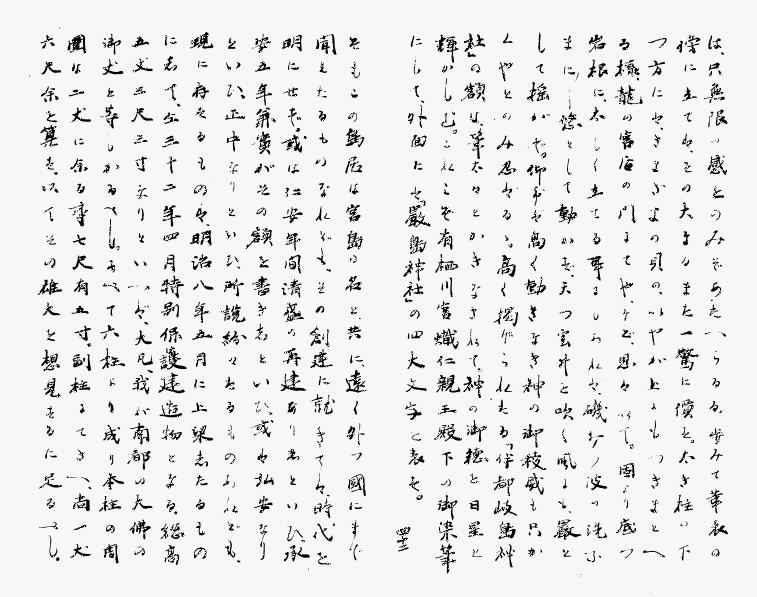 は、只無限の感をのみぞあたへらるる、歩みて華表の
傍に立てば、その大なるにまた一驚に價す。太き柱の下
つ方には、さまざまの貝の、いやが上にもつきまとへ
る様、龍の宮居の門はてや、など、思はれて。固より底つ
岩根に、太しく立てる事にしあれば、磯打つ波の洗ふ
まに〳〵悠として動かず、天つ雲井を吹く風にも、嚴と
して搖がず。御世も高く動きなき神の御稜威も只か
くやとのみ忍ばるる。高く掲げられたる「伊都岐島神
社」の額は、筆太々とかきなされて、神の御穂と日星と
輝かしむ。これこそ有栖川宮熾仁親王殿下の御染筆
にして、外面には「嚴島神社」の四大文字を表せ。
そもこの鳥居は宮島の名と共に、遠く外つ國にまで
聞えたるものなれども、その創建に就きては、時代を
明にせず。或は仁安年間清盛の再建ありきといひ、承
安五年の額を書ききといひ、或は弘安なり
といひ、正中なりといひ、所説紛々たるものあれども、
現に存せるものは、明治八年五月に上梁したるもの
にして、仝三十二年四月特別保護建造物となる、総高
五丈三尺三寸なりといへば、大凡、我が南都の大佛の
御丈と等しかるべし。すべて六柱より成り本柱の周
圍は二丈に余る尋七尺有五寸。副柱にてさへ、尚一丈
六尺余を算す、以てその雄大を想見するに足るべし。